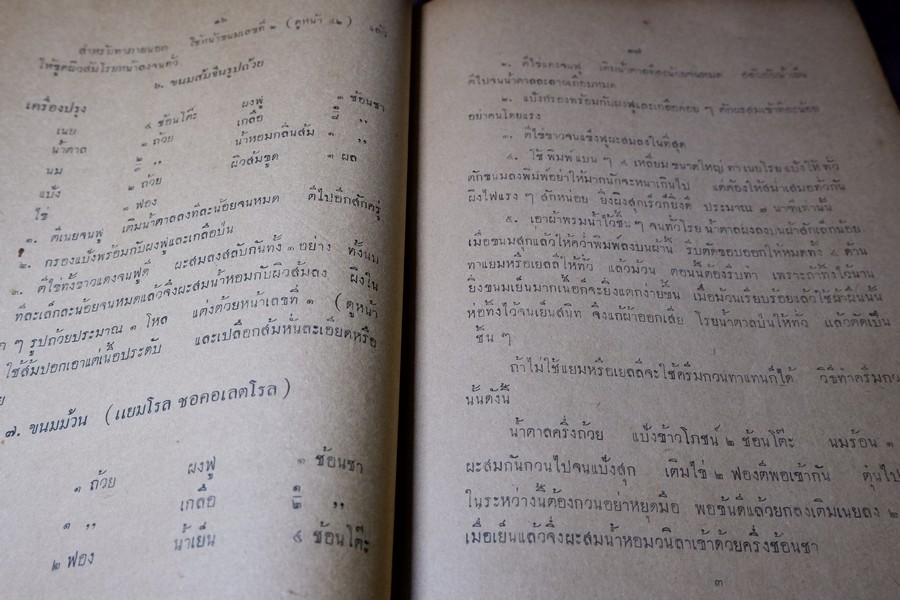 สำหรับทาภายนอก ใช้หน้าขนมเลขที่ ๑ (ดูหน้า ๔๒) แล้ว
ให้ขูดผิวส้มโรยหน้าลงจนทั่ว
๖. ขนมส้มจีนรูปถ้วย
เครื่องปรุง
เนย ๔ ช้อนโต๊ะ ผงฟู ๓ ช้อนชา
น้ำตาล ๑ ถ้วย เกลือ ,,
นม น้ำหอมกลิ่นส้ม ๑ ,,
แป้ง ๒ ถ้วย ผิวส้มขูด ๑ ผล
ไข่ ฟอง
๑. ตีเนยจนฟู เติมน้ำตาลลงทีละน้อยจนหมด ตีไปอีกสักครู่
๒. กรองแป้งพร้อมกับผงฟูและเกลือป่น
๓. ตีไข่ทั้งขาวแดงจนฟูดี ผะสมลงสลับกันทั้ง ๓ อย่าง ทั้งนม
ทีละเล็กละน้อยจนหมดแล้วจึงผะสมน้ำหอมกับผิวส้มลง ผิงใน
ๆ รูปถ้วยประมาณ ๑ โหล แต่งด้วยหน้าเลขที่ ๑ (ดูหน้า
ใช้ส้มปอกเอาแต่เนื้อประดับ และเปลือกส้มหั่นละเอียดหรือ
๗. ขนมม้วน (แยมโรล ชอคอเลตโรล)
๑ ถ้วย ผงฟู ๑ ช้อนชา
๑ ,, เกลือ ๑/๒ ,,
๒ ฟอง น้ำเย็น ๔ ช้อนโต๊ะ
๑. ตีไข่แดงจนฟู เติมน้ำตาลทีละน้อยจนหมด
ตีไปจนน้ำตาลละลายเกือบหมด
๒. แป้งกรองพร้อมกับผงฟูและเกลือค่อย ๆ ตักผะสมเข้าทีละน้อย
อย่าคนโดยแรง
๓. ตีไข่ขาวจนแข็งฟูผะสมลงในที่สุด
๔. ใช้พิมพ์แบน ๆ ๔ เหลี่ยมขนาดใหญ่ ทาเนยโรยแป้งให้ทั่ว
ตักขนมลงพิมพ์อย่าให้มากนักจะหนาเกินไป แต่ต้องให้สม่ำเสมอทั่วกัน
ผิงไฟแรง ๆ สักหน่อย ยิ่งผิงสุกเร็วก็ยิ่งดี ประมาณ ๗ นาทีเท่านั้น
๕. เอาผ้าพรมน้ำไว้ชื้น ๆ จนทั่วโรยน้ำตาลผงลงบนผ้าสักเล็กน้อย
เมื่อขนมสุกแล้วให้คว่ำพิมพ์ลงบนผ้านี้ รีบตัดขอบออกให้หมดทั้ง ๔ ด้าน
ทาแยมหรือเยลลี่ให้ทั่ว แล้วม้วน ตอนนี้ต้องรีบทำ เพราะถ้าทิ้งไว้นาน
ยิ่งขนมเย็นมากเนื้อก็จะยิ่งแตกง่ายขึ้น เมื่อม้วนเรียบร้อยแล้วใช้ผ้าผืนนั้น
ห่อทิ้งไว้จนเย็นสนิท จึงแก้ผ้าออกเสีย โรยน้ำตาลป่นให้ทั่ว แล้วตัดเป็น
ชิ้น ๆ
ถ้าไม่ใช้แยมหรือเยลลี่จะใช้ครีมกวนทาแทนก็ได้ วิธีทำครีมกวน
นั้นดังนี้
น้ำตาลครึ่งถ้วย แป้งข้าวโภชน์ ๒ ช้อนโต๊ะ นมร้อน ๑
ผะสมกันกวนไปจนแป้งสุก เติมไข่ ๒ ฟองตีพอเข้ากัน ตุ๋นไป
ในระหว่างนี้ต้องกวนอย่าหยุดมือ พอข้นดีแล้วยกลงเติมเนยลง ๒
เมื่อเย็นแล้วจึงผะสมน้ำหอมวนิลาเข้าด้วยครึ่งช้อนชา
๓